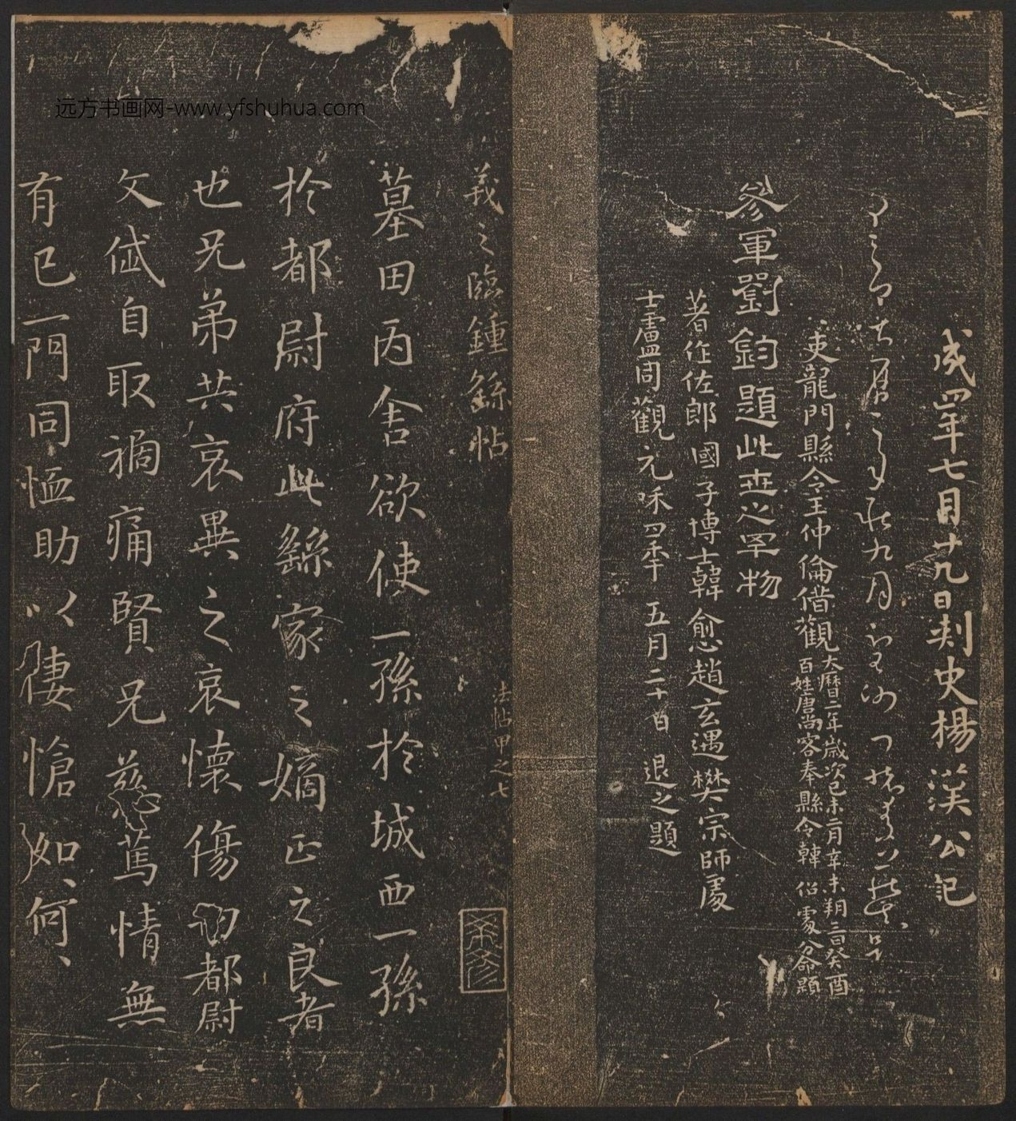 成四年七月廿九日刺史楊漢公記
九月
吏龍門縣令王仲倫借觀
大曆二年歲次己未二月辛未朔三日癸酉
百姓唐尚客奉縣令韓
命題
參軍劉鈞題此世之罕物
著作佐郎國子博士韓愈趙玄遇樊宗師處
士盧同觀元和四年五月二十日退之題
羲之臨鍾繇帖
法帖甲之七
墓田丙舍欲使一孫於城西一孫
於都尉府此繇家之嫡正之良者
也兄弟共哀異之哀懷傷切都尉
文岱自取禍痛賢兄慈篤情無
有已一門同恤助以悽愴如何、
远方书画网-www.yfshuhua.com